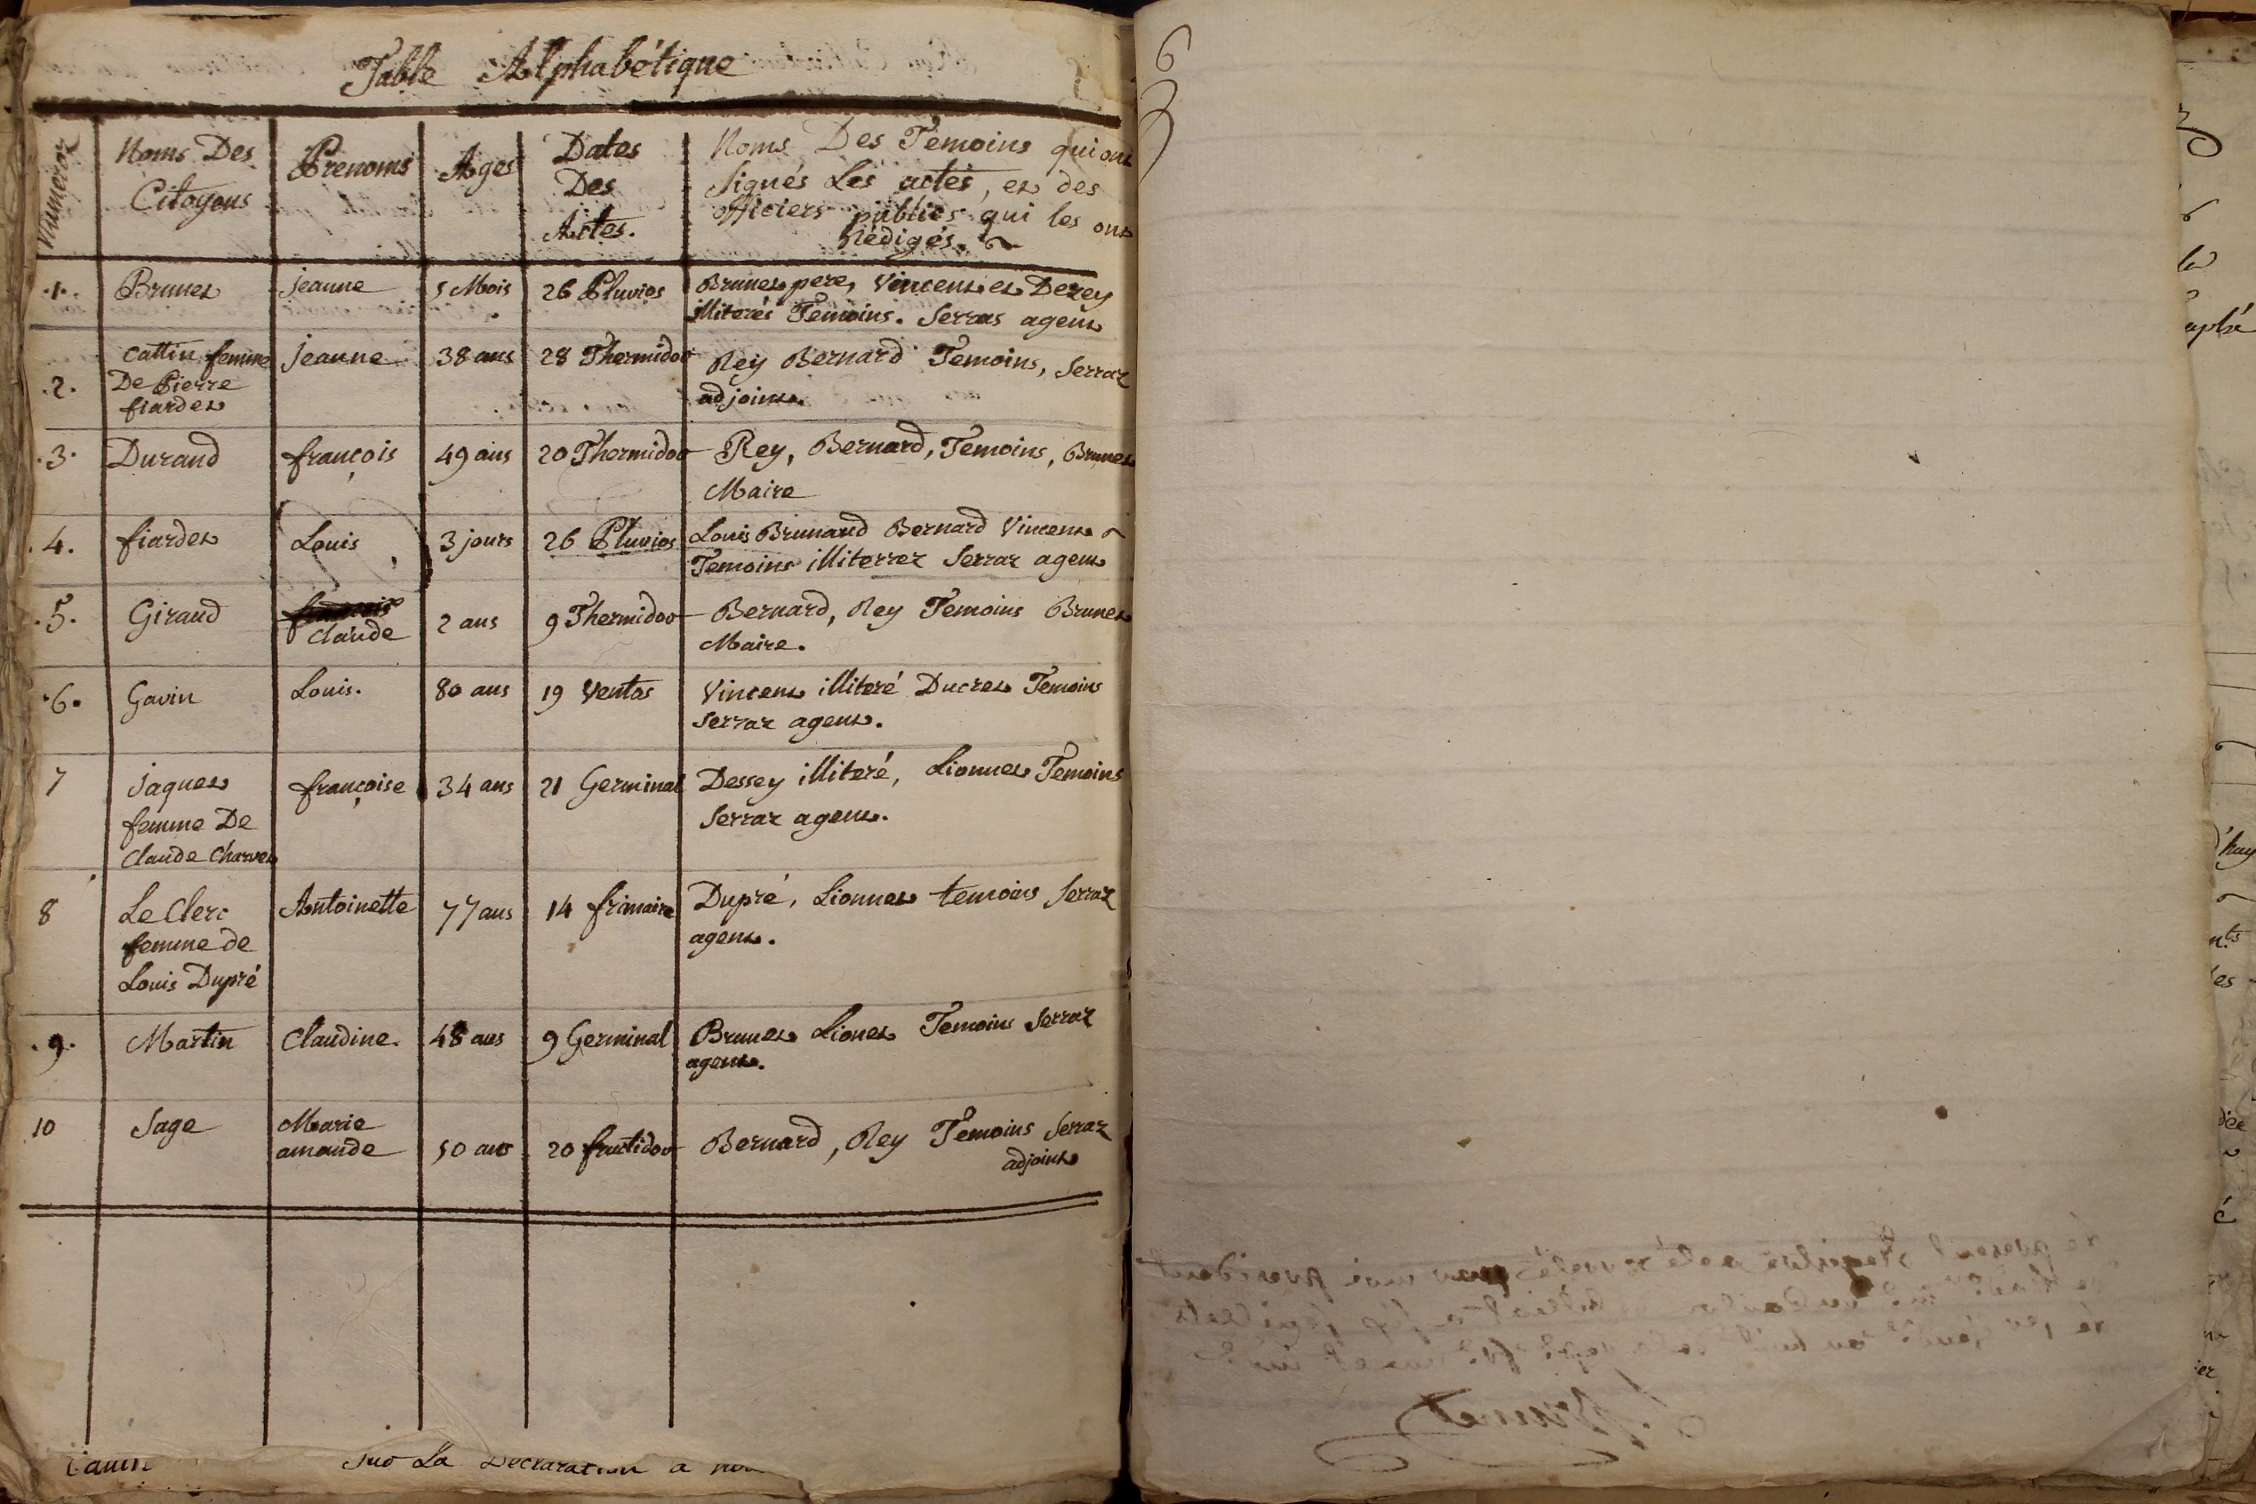 Table Alphabétique
Numeros
Noms Des
Citoyens
Prenoms
Ages
Dates
Des
Actes.
Noms Des Temoins qui ont
signés Les actes, et des
officiers publics qui les ont
Rédigés.
.1. Brunet jeanne 5 Mois 26 Pluvios Brunet pere, Vincent et Dezey
illiterés Temoins. Serras agent
.2. Cattin femme jeanne 38 ans 28 Thermidor Rey Bernard Temoins, Serraz
De Pierre adjoint.
fiardet
.3. Durand françois 49 ans 20 Thermidor Rey, Bernard, Temoins, Brunet
Maire
.4. fiardet Louis 3 jours 26 Pluvios Louis Brunaud Bernard Vincent
Temoins illiterrez Serraz agent
.5. Giraud françois 2 ans 9 Thermidor Bernard, Rey Temoins Brunet
Claude Maire.
.6. Gavin Louis. 80 ans 19 Ventos Vincent illiteré Ducret Temoins
Serraz agent.
7 jaquet françoise 34 ans 21 Germinal Dessey illiteré, Lionnet Temoins
femme De Serraz agent.
Claude Charvet
8 Le Clerc Antoinette 77 ans 14 frimaire Dupré, Lionnet temoins Serraz
femme de agent.
Louis Dupré
.9. Martin Claudine. 48 ans 9 Germinal Brunet Lionet Temoins Serraz
agent.
10 Sage Marie 50 ans 20 fructidor Bernard, Rey Temoins Serraz
amande adjoint
La Declaration a